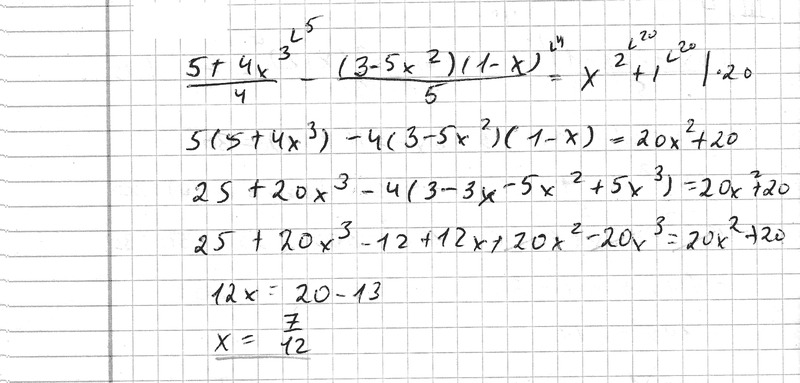 (5+4x³)/4 ∟5 - ((3-5x²)(1-x))/5 ∟4 = x² ∟20 + 1 ∟20 |·20
5(5+4x³) - 4(3-5x²)(1-x) = 20x²+20
25 + 20x³ - 4(3-3x-5x²+5x³) = 20x²+20
25 + 20x³ - 12 + 12x + 20x² - 20x³ = 20x²+20
12x = 20-13
x = 7/12